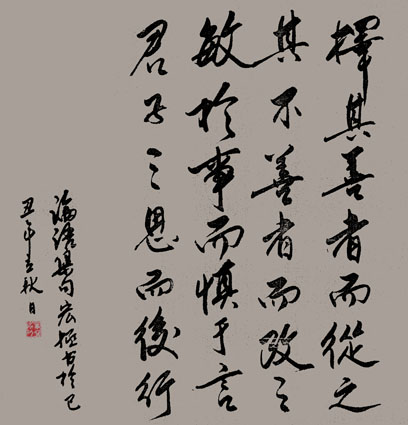 擇其善者而從之
其不善者而改之
敏於事而慎于言
君子三思而後行
論語集句宏書於己
丑年立秋日